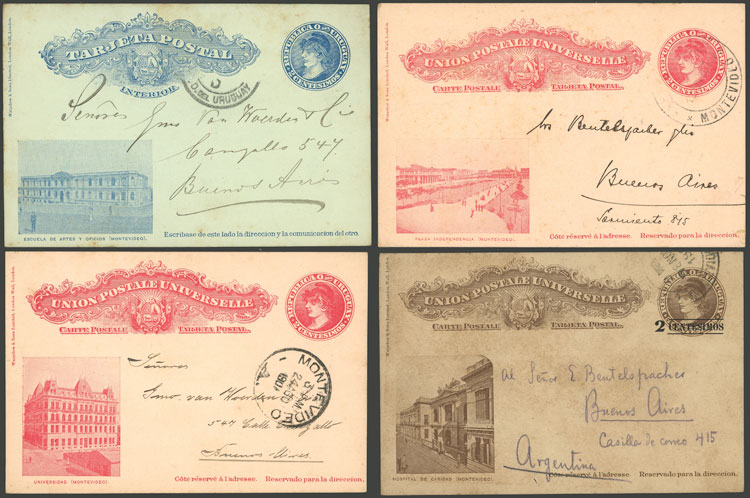 Waterlow & Sons Limited, London Wall, London.
TARJETA POSTAL
INTERIOR
REPUBLICA O. DEL URUGUAY
CENTESIMOS
D. DEL URUGUAY
Señores Gmo Van Woerden & Cio
Cangallo 547
Buenos Aires
ESCUELA DE ARTES Y OFICIOS (MONTEVIDEO).
Escribase de este lado la direccion y la comunicacion del otro.
Waterlow & Sons Limited, London Wall, London.
UNION POSTALE UNIVERSELLE
CARTE POSTALE TARJETA POSTAL.
REPUBLICA O. DEL URUGUAY
2 CENTESIMOS
MONTEVIDEO
Bentelspacher
Buenos Aires
Sarmiento 815
PLAZA INDEPENDENCIA (MONTEVIDEO).
Côté réservé à l'adresse. Reservado para la direccion.
Waterlow & Sons Limited, London Wall, London.
UNION POSTALE UNIVERSELLE
CARTE POSTALE TARJETA POSTAL.
REPUBLICA O. DEL URUGUAY
2 CENTESIMOS
MONTEVIDEO
A.
Señores
Gmo. van Woerden
547 Calle Cangallo
Buenos Aires.
UNIVERSIDAD (MONTEVIDEO)
Côté réservé à l'adresse. Reservado para la direccion.
Waterlow & Sons Limited, London Wall, London.
UNION POSTALE UNIVERSELLE
CARTE POSTALE TARJETA POSTAL.
2 CENTESIMOS
Al Señor E. Bentelspacher
Buenos Aires
Casilla de correo 415
Argentina
HOSPITAL DE CARIDAD (MONTEVIDEO)
Côté réservé à l'adresse. Reservado para la direccion.